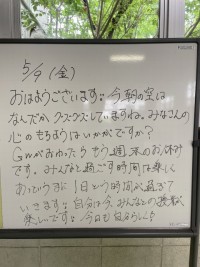 5/9(金)
おはようございます!! 今朝の空は
なんだかグズグズしていますね。みなさんの
心のもようはいかがですか?
GWがおわったらもう週末のお休み
です。みんなと過ごす時間は楽しく
あっというまに1日という時間が過ぎて
いきます!! 自分は今、みんなとの
楽しいです!! 今日も